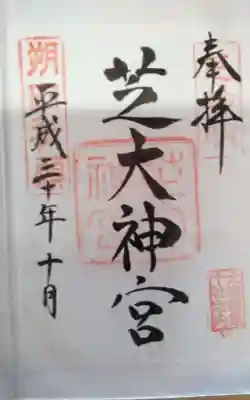 奉拝
芝大神宮
平成三十年十月
朔